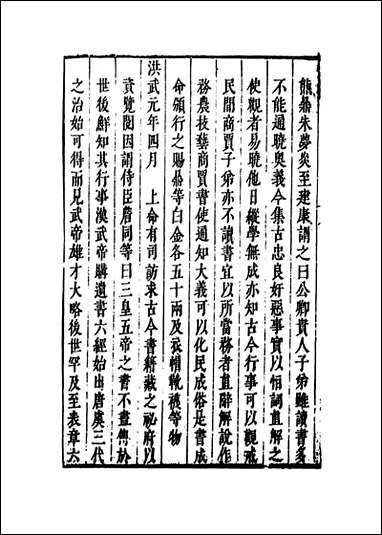 熊鼎朱夢炎至建康謂之曰公卿貴人子弟雖讀書多
不能通曉奥義今集古忠良奸惡事實以恒詞直解之
使觀者易曉他日縱學無成亦知古今行事可以觀戒
民間商賈子弟亦不讀書宜以所當務者直辭解說作
務農技藝商賈書使通知大義可以化民成俗是書成
命頒行之賜鼎等白金各五十兩及衣帽靴襪等物
洪武元年四月　上命有司訪求古今書籍藏之祕府以
資覽閱因謂侍臣詹同等曰三皇五帝之書不盡傳於
世後鮮知其行事漢武帝購遺書六經始出唐虞三代
之治始可得而見武帝雄才大略後世罕及至表章六